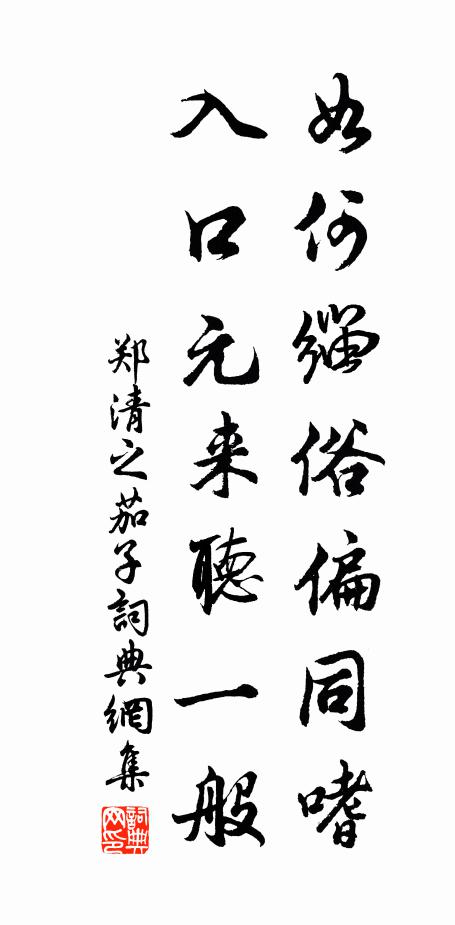 如何缁俗偏同嗜
入口元来聴一般
郑清之茄子詞典網集
詞典网印